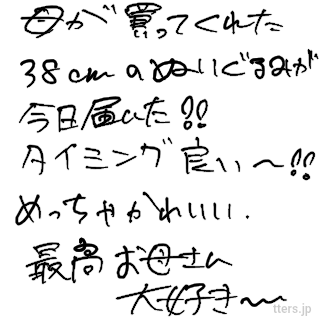 母が買ってくれた
38cmのぬいぐるみが
今日届いた!!
タイミング良い〜!!
めっちゃかわいい.
最高お母さん
大好き〜
tters.jp